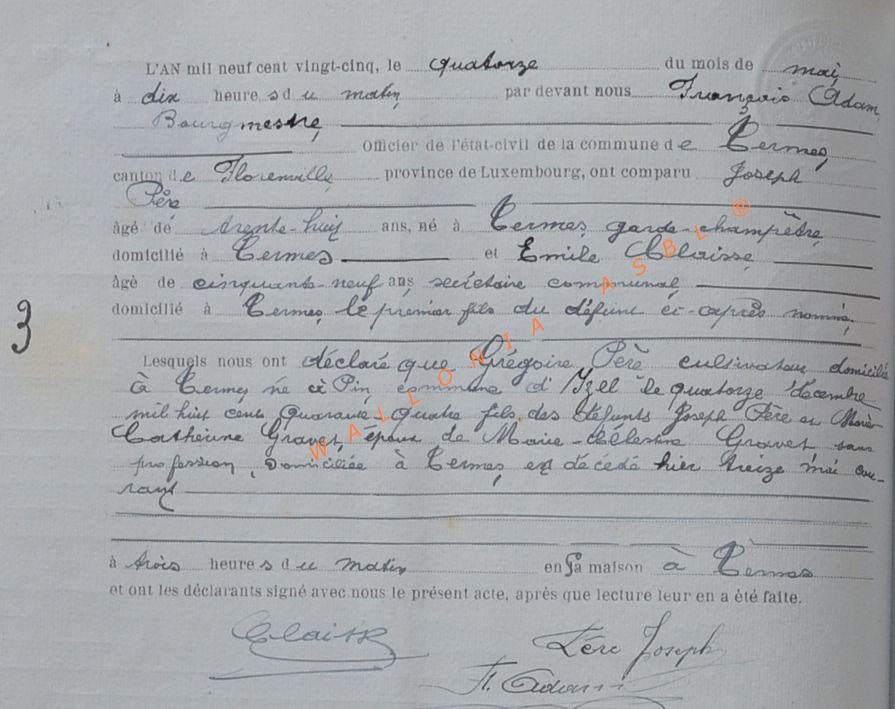 L'AN mil neuf cent vingt-cinq, le quatorze du mois de mai
à dix heures du matin par devant nous François Adam
Bourgmestre
Officier de l'état-civil de la commune de Termes
canton de Florenville province de Luxembourg, ont comparu Joseph
Père
âgé de trente-huit ans, né à Termes, garde-champêtre
domicilié à Termes et Emile Claisse
âgé de cinquante-neuf ans, secrétaire communal,
domicilié à Termes, le premier fils du défunt ci-après nommé,
3
Lesquels nous ont déclaré que Grégoire Père cultivateur domicilié
à Termes né à Pin, commune d'Izel le quatorze décembre
mil huit cent quarante-quatre fils des défunts Joseph Père et Marie-
Catherine Gravet, époux de Marie-Célestine Gravet sans
profession, domiciliée à Termes, est décédé hier treize mai cou-
rant
à trois heures du matin en sa maison à Termes
et ont les déclarants signé avec nous le présent acte, après que lecture leur en a été faite.
Claisse Père Joseph
F. Adam
WALLONIA ASBL ®